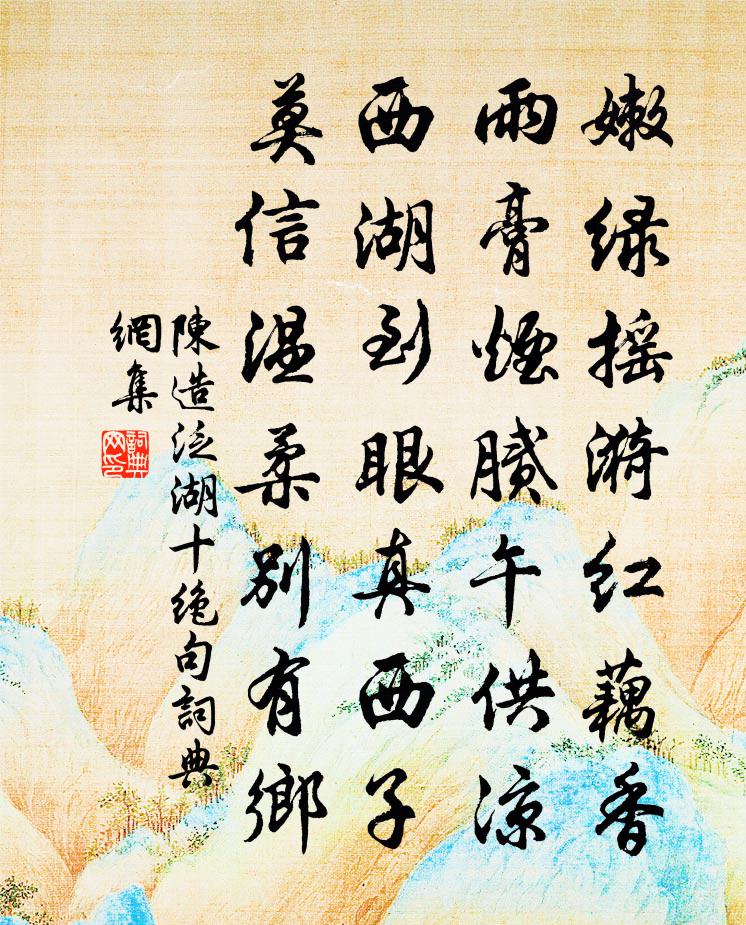 嫩绿摇漪红藕香
雨膏煙膩午供凉
西湖到眼真西子
莫信温柔别有鄉
陳造泛湖十绝句詞典
網集
詞典
网印